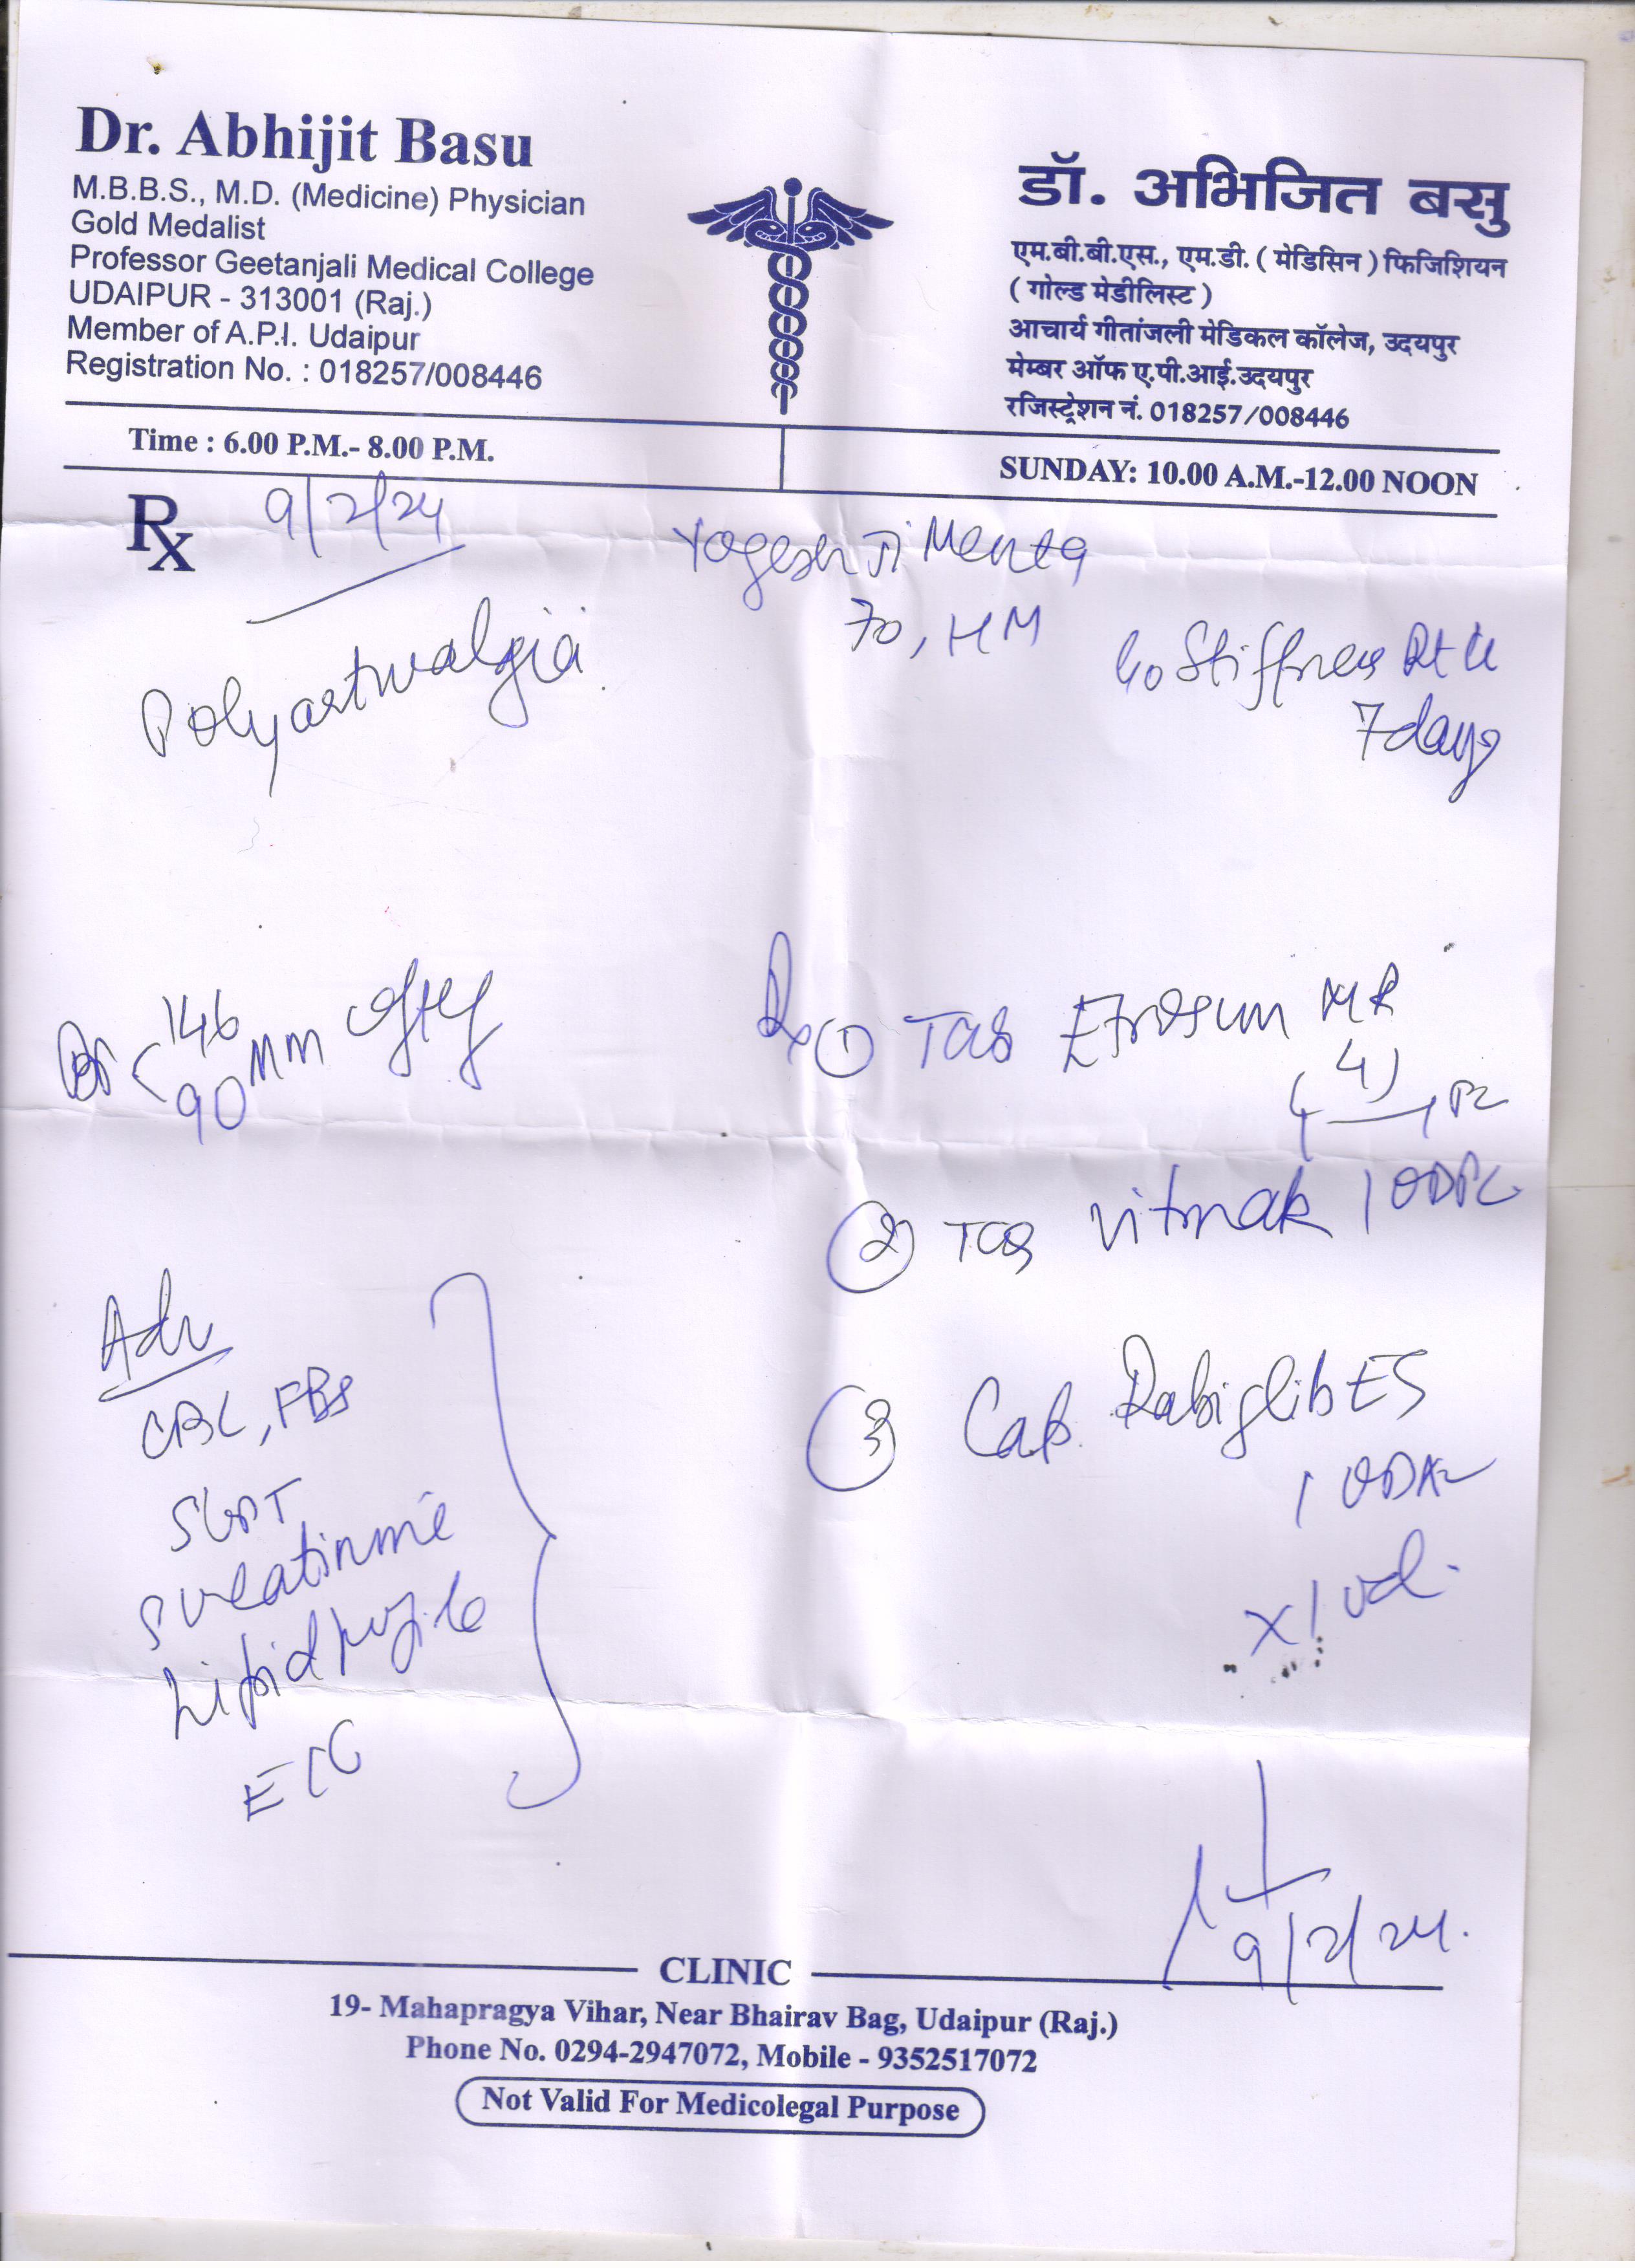 Dr. Abhijit Basu
M.B.B.S., M.D. (Medicine) Physician
Gold Medalist
Professor Geetanjali Medical College
UDAIPUR - 313001 (Raj.)
Member of A.P.I. Udaipur
Registration No. : 018257/008446
डॉ. अभिजित बसु
एम.बी.बी.एस., एम.डी. ( मेडिसिन ) फिजिशियन
( गोल्ड मेडीलिस्ट )
आचार्य गीतांजली मेडिकल कॉलेज, उदयपुर
मेम्बर ऑफ ए.पी.आई.उदयपुर
रजिस्ट्रेशन नं. 018257/008446
Time : 6.00 P.M.- 8.00 P.M.
SUNDAY: 10.00 A.M.-12.00 NOON
Rx 9/2/24
Yogesh Ji Mehta
70, HM
Polyarthralgia
c/o Stiffness Rt
7 days
BP 146
90 mm of Hg
Rx ① Tab MR
② Tab 1 OD
③ Cap. ES
1 OD
Adv
CBC, FBS
SGPT
S creatinine
Lipid profile
ECG
9/2/24.
CLINIC
19- Mahapragya Vihar, Near Bhairav Bag, Udaipur (Raj.)
Phone No. 0294-2947072, Mobile - 9352517072
Not Valid For Medicolegal Purpose